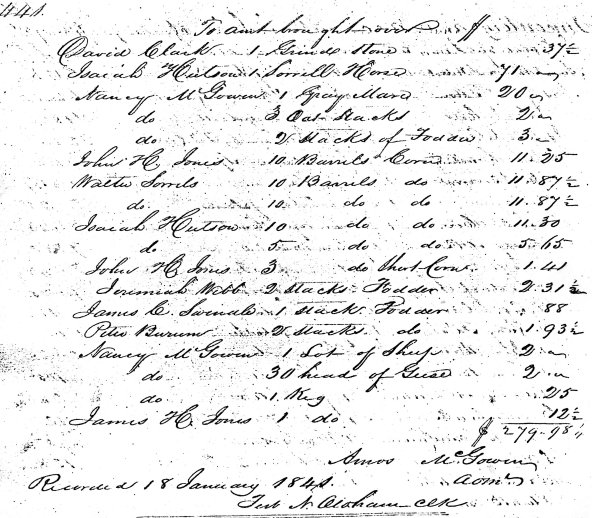 441.
To amt brought over $
David Clark 1 Grind Stone 37½
Isaiah Hutson 1 Sorrell Horse 71 "
Nancy McGowen 1 Gray Mare 20 "
do 3 Oat Stacks 2 "
do 2 Stacks of Fodder 3 "
John H. Jones 10 Barrels Corn 11.25
Walter Sorrels 10 Barrels do 11.87½
do 10 do do 11.87½
Isaiah Hutson 10 do do 11.30
do 5 do do 5.65
John H. Jones 3 do Short Corn 1.41
Jeremiah Webb 2 Stacks Fodder 2.31½
James C. 1 Stack Fodder 88
Peter 2 Stacks do 1.93½
Nancy McGowen 1 Lot of Sheep 2 "
do 30 head of Geese 2 "
do 1 Keg 25
James H. Jones 1 do 12½
$279.98¼
Amos McGowen
Admr
Recorded 18 January 1841
Test N. Oldham Clk